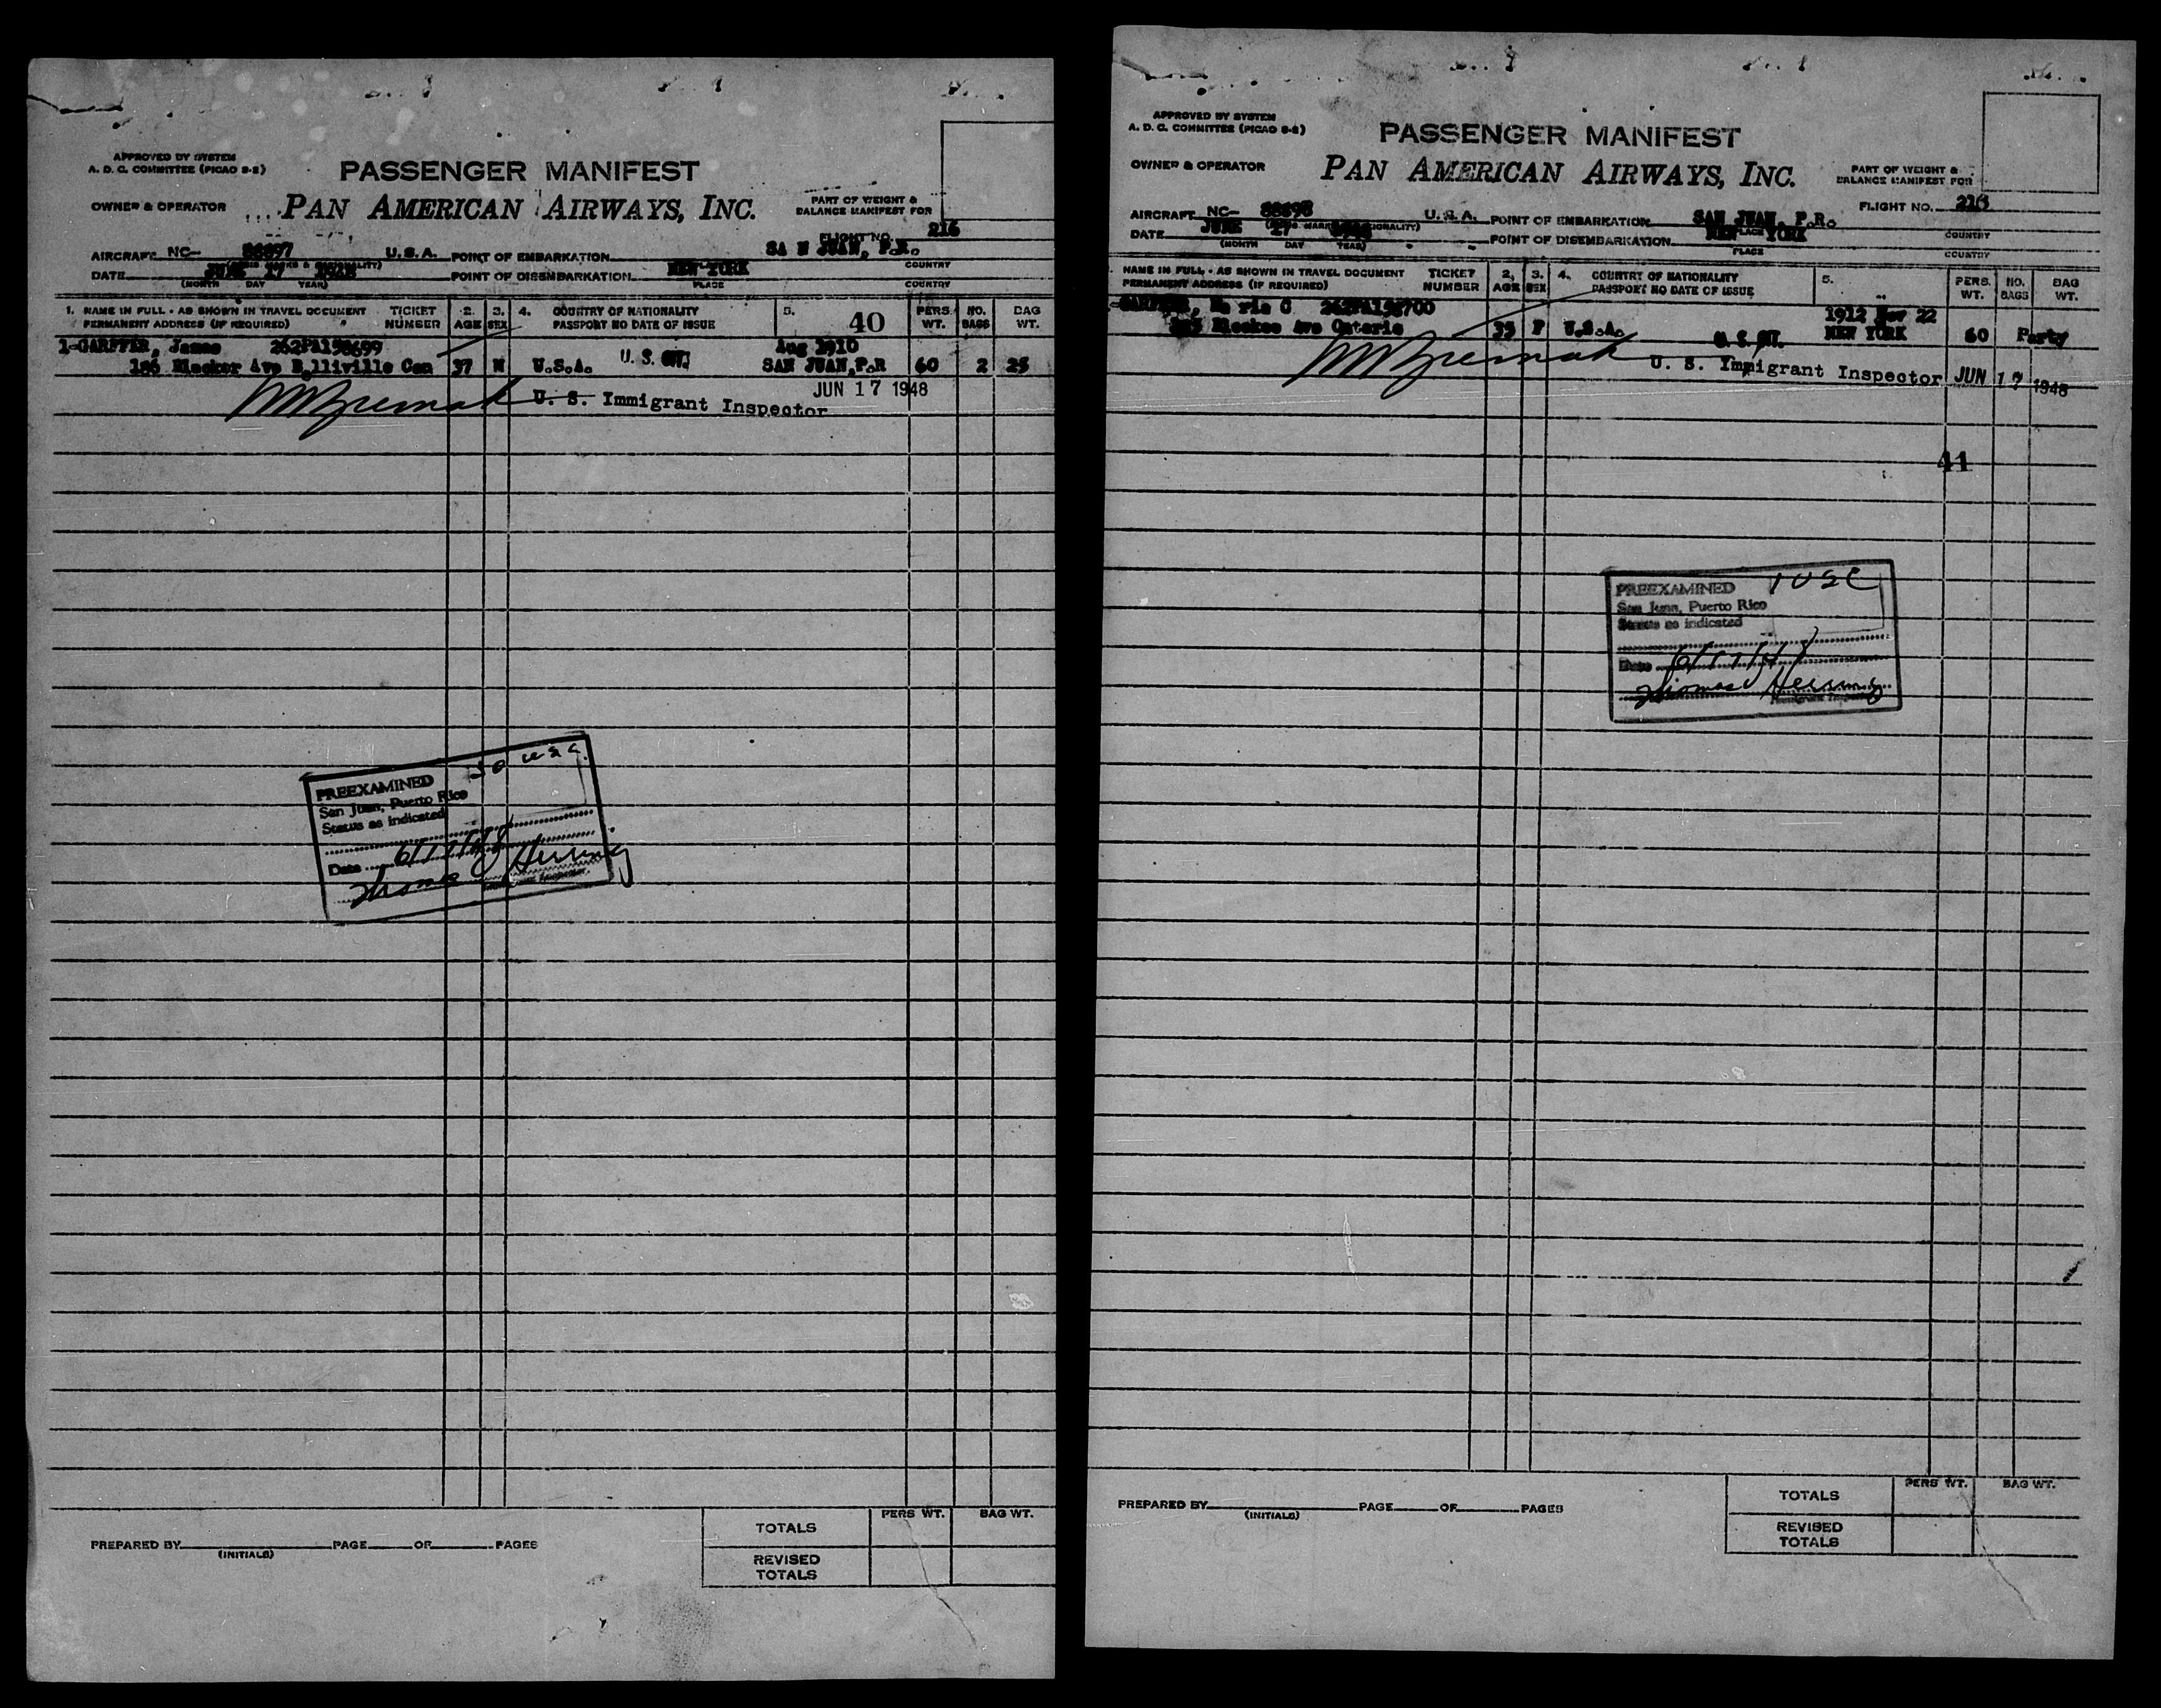 APPROVED BY SYSTEM
A. D. C. COMMITTEE (PICAO S-2)
PASSENGER MANIFEST
OWNER & OPERATOR
PAN AMERICAN AIRWAYS, INC.
PART OF WEIGHT &
BALANCE MANIFEST FOR
FLIGHT NO. 216
AIRCRAFT NC- 88897 U.S.A. POINT OF EMBARKATION SA N JUAN, P.R.
DATE JUNE 17 1948 POINT OF DISEMBARKATION NEW YORK
(MONTH DAY YEAR) PLACE COUNTRY
1. NAME IN FULL - AS SHOWN IN TRAVEL DOCUMENT TICKET 2. 3. 4. COUNTRY OF NATIONALITY 5. 40 PERS. NO. BAG
PERMANENT ADDRESS (IF REQUIRED) NUMBER AGE SEX PASSPORT NO DATE OF ISSUE WT. BAGS WT.
1-GARFFER, James 262PA198699 Aug 1910
186 Bleeker Ave Belliville Can 37 M U.S.A. U. S. CIT. SAN JUAN,P.R 60 2 25
U. S. Immigrant Inspector JUN 17 1948
PREEXAMINED
San Juan, Puerto Rico
Status as indicated
Date 6/17/48
Thomas Herring
Immigrant Inspector
PREPARED BY (INITIALS) PAGE OF PAGES
PERS WT. BAG WT.
TOTALS
REVISED
TOTALS
APPROVED BY SYSTEM
A. D. C. COMMITTEE (PICAO S-2)
PASSENGER MANIFEST
OWNER & OPERATOR
PAN AMERICAN AIRWAYS, INC.
PART OF WEIGHT &
BALANCE MANIFEST FOR
FLIGHT NO. 216
AIRCRAFT NC- 88898 U.S.A. POINT OF EMBARKATION SAN JUAN, P.R.
DATE JUNE 17 POINT OF DISEMBARKATION NEW YORK
(MONTH DAY YEAR) PLACE COUNTRY
NAME IN FULL - AS SHOWN IN TRAVEL DOCUMENT TICKET 2. 3. 4. COUNTRY OF NATIONALITY 5. PERS. NO. BAG
PERMANENT ADDRESS (IF REQUIRED) NUMBER AGE SEX PASSPORT NO DATE OF ISSUE WT. BAGS WT.
GARFFER, Ma rie C 262PA198700 1912 Nov 22
Bleekee Ave Ontario 35 F U.S.A. U. S. CIT. NEW YORK 60 Party
U. S. Immigrant Inspector JUN 17 1948
41
PREEXAMINED 1 USC
San Juan, Puerto Rico
Status as indicated
Date 6/17/48
Thomas Herring
Immigrant Inspector
PREPARED BY (INITIALS) PAGE OF PAGES
PERS WT. BAG WT.
TOTALS
REVISED
TOTALS